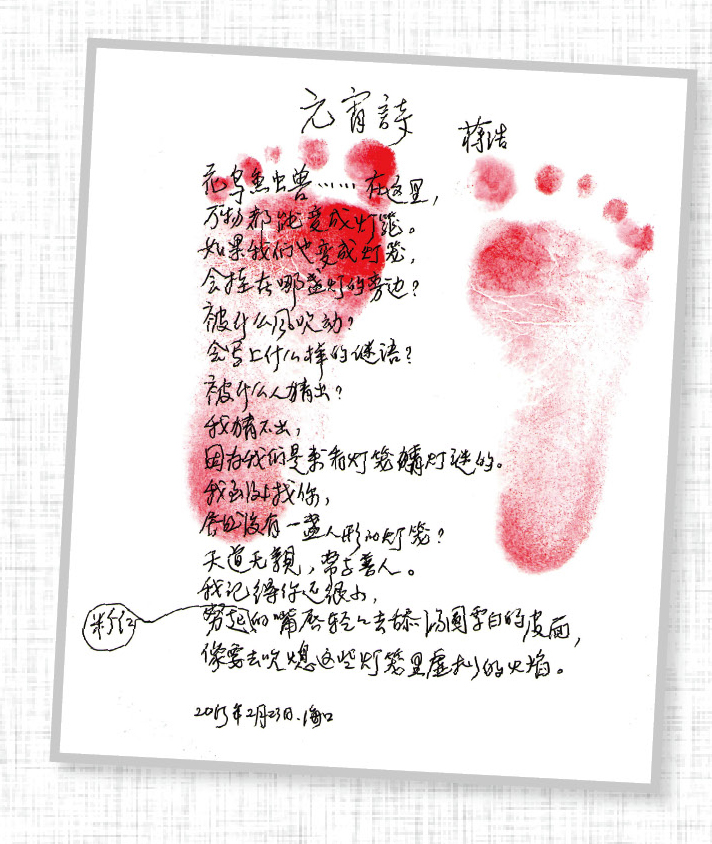 元宵詩
蒋浩
花鸟魚虫兽……在这里，
万物都能变成灯笼。
如果我们也变成灯笼，
会挂在哪盏灯的旁边？
被什么风吹动？
会写上什么样的谜语？
被什么人猜出？
我猜不出，
因为我们是来看灯笼猜灯谜的。
我到处找你，
居然没有一盏人形的灯笼？
天道无親，常与善人。
我记得你还很小，
粉红
努起的嘴唇轻轻去舔汤圆雪白的皮面，
像要去吹熄这些灯笼里虚拟的火焰。
2013年2月23日．海口